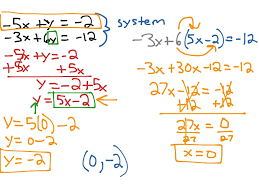 -5x+y = -2
-3x+6y = -12
system
-5x+y = -2
+5x +5x
y = -2+5x
y = 5x-2
y = 5(0)-2
y = 0-2
y = -2
(0,-2)
-3x+6(5x-2)=-12
-3x+30x-12=-12
27x-12=-12
+12 +12
27x = 0
27 27
x=0